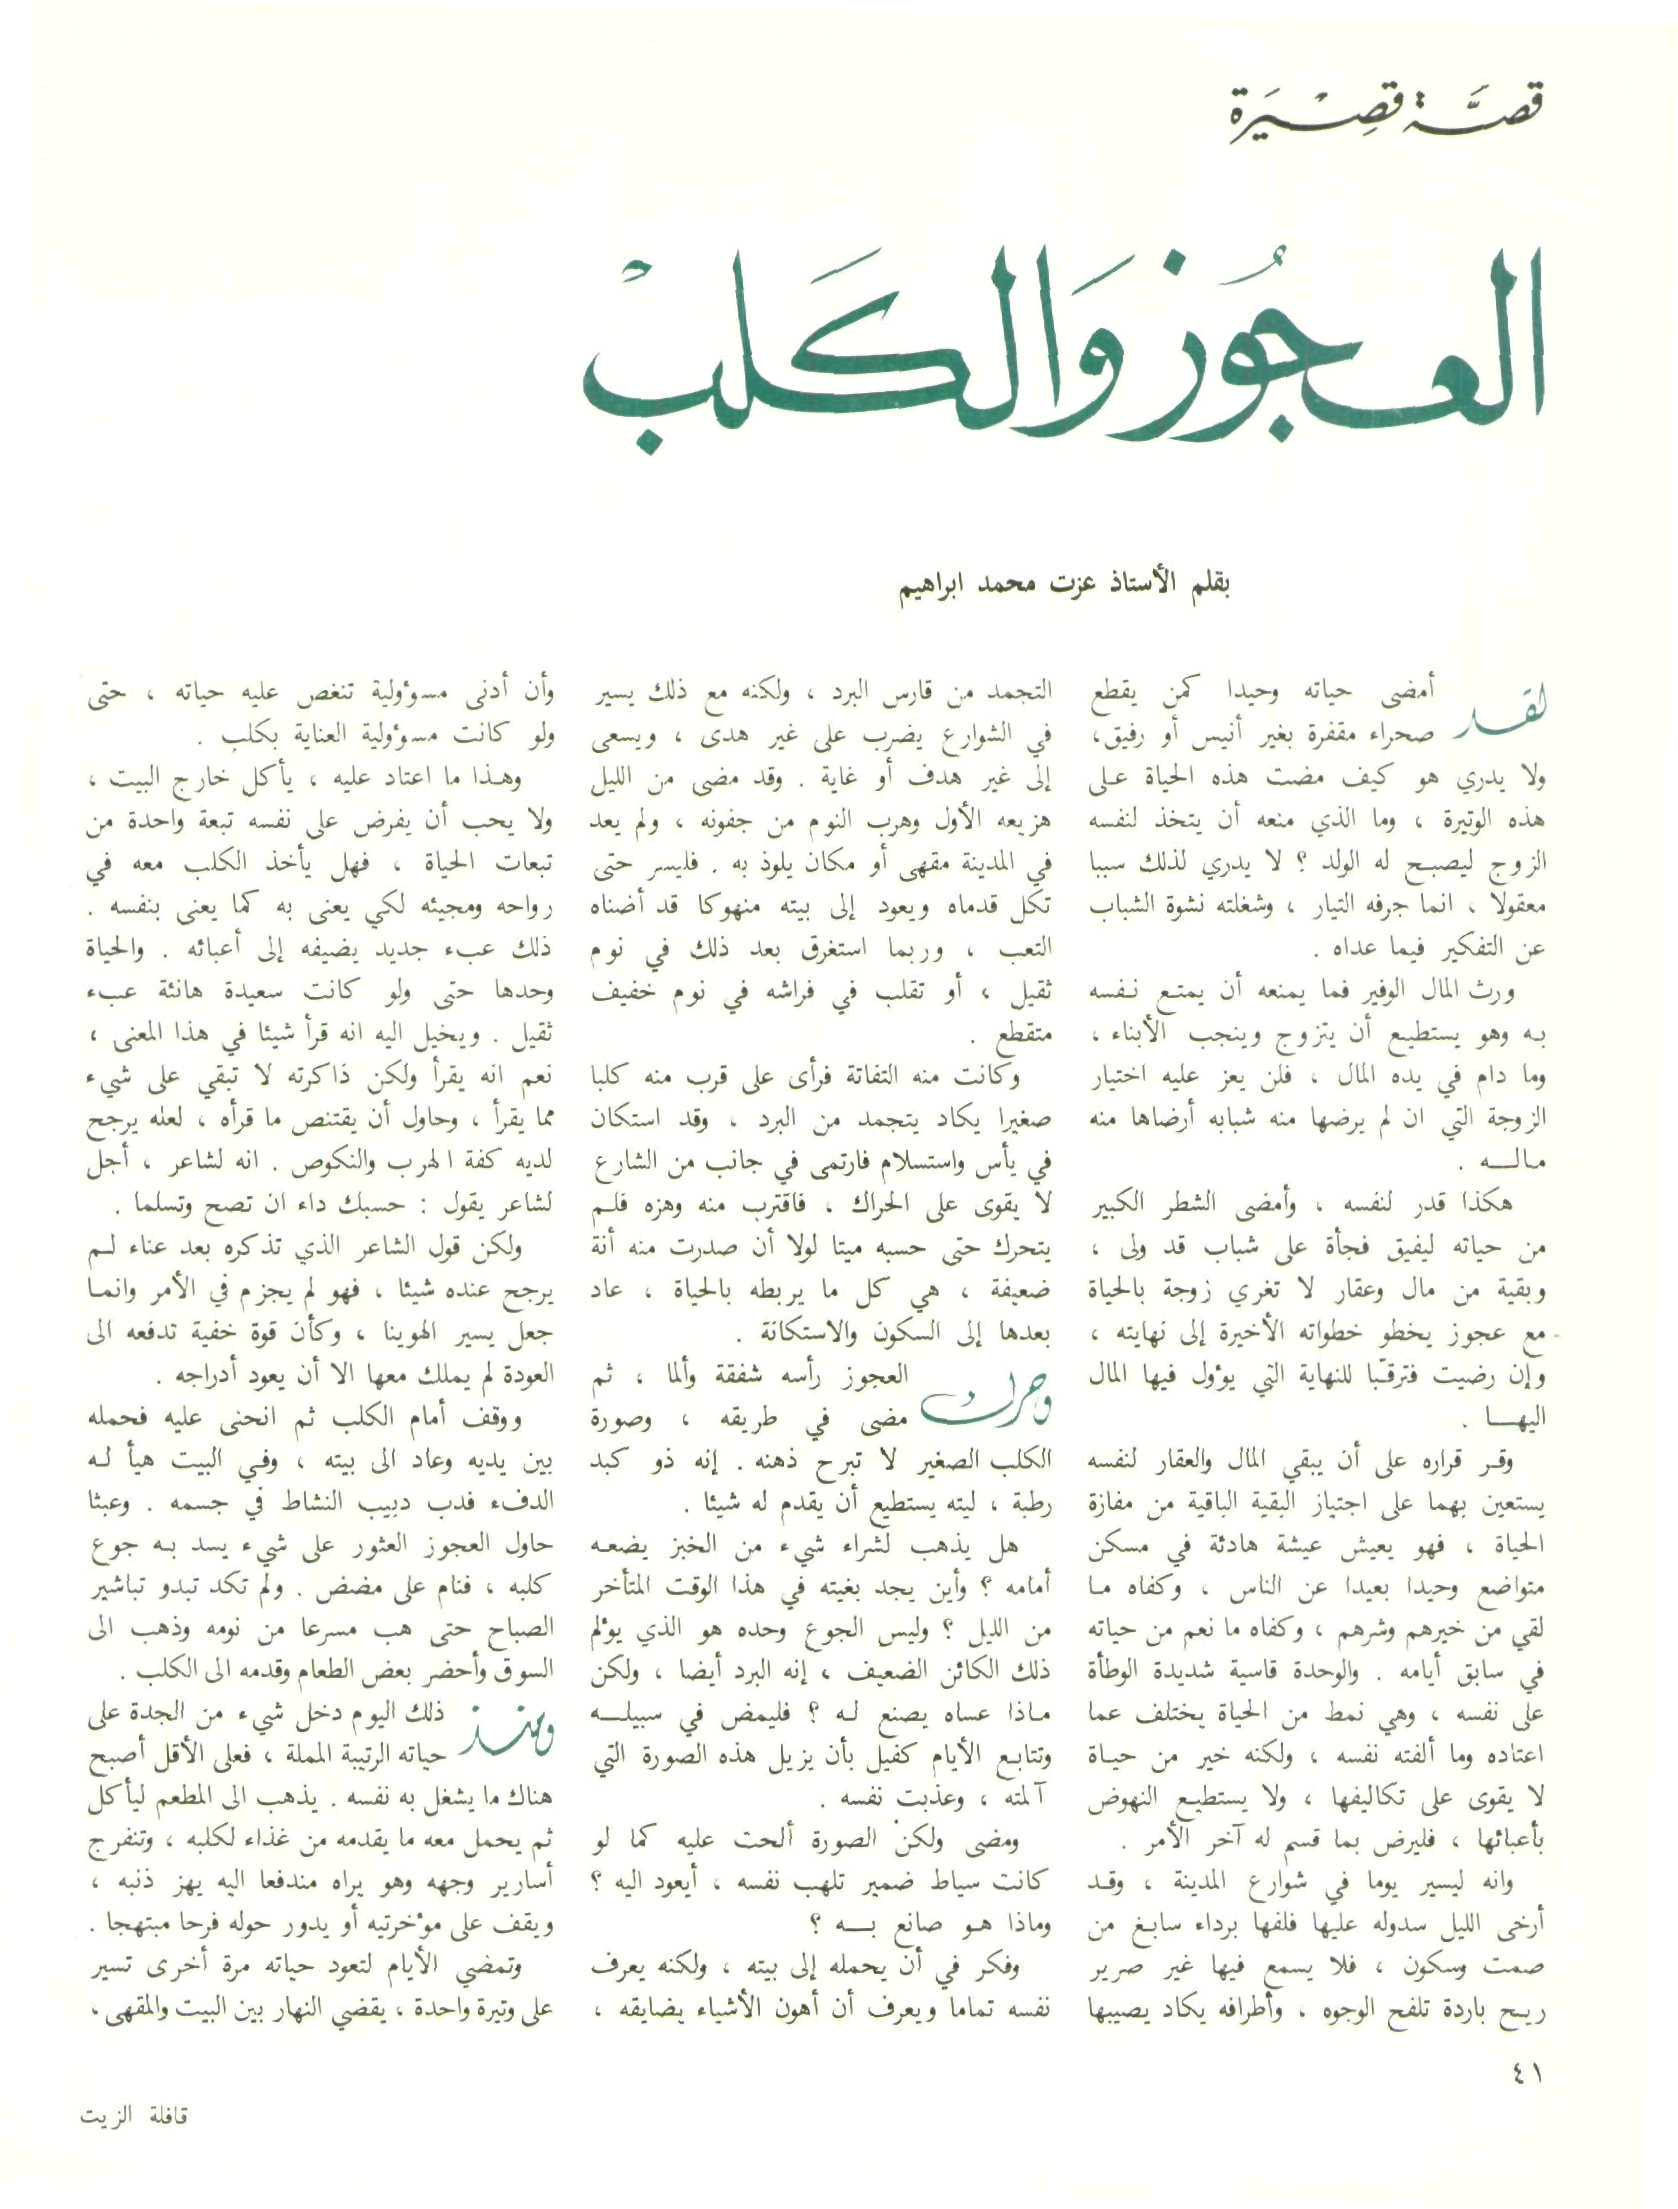 قصة قصيرة
العجوز والكلب
بقلم الأستاذ عزت محمد ابراهيم
لقد أمضى حياته وحيدا كمن يقطع
صحراء مقفرة بغير أنيس أو رفيق،
ولا يدري هو كيف مضت هذه الحياة على
هذه الوتيرة ، وما الذي منعه أن يتخذ لنفسه
الزوج ليصبح له الولد ؟ لا يدري لذلك سببا
معقولا ، انما جرفه التيار ، وشغلته نشوة الشباب
عن التفكير فيما عداه .
ورث المال الوفير فما يمنعه أن يمتع نفسه
به وهو يستطيع أن يتزوج وينجب الأبناء ،
وما دام في يده المال ، فلن يعز عليه اختيار
الزوجة التي ان لم يرضها منه شبابه أرضاها منه
ماله .
هكذا قدر لنفسه ، وأمضى الشطر الكبير
من حياته ليفيق فجأة على شباب قد ولى ،
وبقية من مال وعقار لا تغري زوجة بالحياة
مع عجوز يخطو خطواته الأخيرة إلى نهايته ،
وإن رضيت فترقبا للنهاية التي يؤول فيها المال
اليها .
وقر قراره على أن يبقي المال والعقار لنفسه
يستعين بهما على اجتياز البقية الباقية من مفازة
الحياة ، فهو يعيش عيشة هادئة في مسكن
متواضع وحيدا بعيدا عن الناس ، وكفاه ما
لقي من خيرهم وشرهم ، وكفاه ما نعم من حياته
في سابق أيامه . والوحدة قاسية شديدة الوطأة
على نفسه ، وهي نمط من الحياة يختلف عما
اعتاده وما ألفته نفسه ، ولكنه خير من حياة
لا يقوى على تكاليفها ، ولا يستطيع النهوض
بأعبائها ، فليرض بما قسم له آخر الأمر .
وانه ليسير يوما في شوارع المدينة ، وقد
أرخى الليل سدوله عليها فلفها برداء سابغ من
صمت وسكون ، فلا يسمع فيها غير صرير
ريح باردة تلفح الوجوه ، وأطرافه يكاد يصيبها
التجمد من قارس البرد ، ولكنه مع ذلك يسير
في الشوارع يضرب على غير هدى ، ويسعى
إلى غير هدف أو غاية . وقد مضى من الليل
هزيعه الأول وهرب النوم من جفونه ، ولم يعد
في المدينة مقهى أو مكان يلوذ به . فليسر حتى
تكل قدماه ويعود إلى بيته منهوكا قد أضناه
التعب ، وربما استغرق بعد ذلك في نوم
ثقيل ، أو تقلب في فراشه في نوم خفيف
متقطع .
وكانت منه التفاتة فرأى على قرب منه كلبا
صغيرا يكاد يتجمد من البرد ، وقد استكان
في يأس واستسلام فارتمى في جانب من الشارع
لا يقوى على الحراك ، فاقترب منه وهزه فلم
يتحرك حتى حسبه ميتا لولا أن صدرت منه أنة
ضعيفة ، هي كل ما يربطه بالحياة ، عاد
بعدها إلى السكون والاستكانة .
وحرك العجوز رأسه شفقة وألما ، ثم
مضى في طريقه ، وصورة
الكلب الصغير لا تبرح ذهنه . إنه ذو كبد
رطبة ، ليته يستطيع أن يقدم له شيئا .
هل يذهب لشراء شيء من الخبز يضعه
أمامه ؟ وأين يجد بغيته في هذا الوقت المتأخر
من الليل ؟ وليس الجوع وحده هو الذي يؤلم
ذلك الكائن الضعيف ، إنه البرد أيضا ، ولكن
ماذا عساه يصنع له ؟ فليمض في سبيله
وتتابع الأيام كفيل بأن يزيل هذه الصورة التي
آلمته ، وعذبت نفسه .
ومضى ولكن الصورة ألحت عليه كما لو
كانت سياط ضمير تلهب نفسه ، أيعود اليه ؟
وماذا هو صانع به ؟
وفكر في أن يحمله إلى بيته ، ولكنه يعرف
نفسه تماما ويعرف أن أهون الأشياء يضايقه ،
وأن أدنى مسؤولية تنغص عليه حياته ، حتى
ولو كانت مسؤولية العناية بكلب .
وهذا ما اعتاد عليه ، يأكل خارج البيت ،
ولا يحب أن يفرض على نفسه تبعة واحدة من
تبعات الحياة ، فهل يأخذ الكلب معه في
رواحه ومجيئه لكي يعنى به كما يعنى بنفسه .
ذلك عبء جديد يضيفه إلى أعبائه . والحياة
وحدها حتى ولو كانت سعيدة هانئة عبء
ثقيل . ويخيل اليه انه قرأ شيئا في هذا المعنى ،
نعم انه يقرأ ولكن ذاكرته لا تبقي على شيء
مما يقرأ ، وحاول أن يقتنص ما قرأه ، لعله يرجح
لديه كفة الهرب والنكوص . انه لشاعر ، أجل
لشاعر يقول : حسبك داء ان تصح وتسلما .
ولكن قول الشاعر الذي تذكره بعد عناء لم
يرجح عنده شيئا ، فهو لم يجزم في الأمر وانما
جعل يسير الهوينا ، وكأن قوة خفية تدفعه الى
العودة لم يملك معها الا أن يعود أدراجه .
ووقف أمام الكلب ثم انحنى عليه فحمله
بين يديه وعاد الى بيته ، وفي البيت هيأ له
الدفء فدب دبيب النشاط في جسمه . وعبثا
حاول العجوز العثور على شيء يسد به جوع
كلبه ، فنام على مضض . ولم تكد تبدو تباشير
الصباح حتى هب مسرعا من نومه وذهب الى
السوق وأحضر بعض الطعام وقدمه الى الكلب .
ومنذ ذلك اليوم دخل شيء من الجدة على
حياته الرتيبة المملة ، فعلى الأقل أصبح
هناك ما يشغل به نفسه . يذهب الى المطعم ليأكل
ثم يحمل معه ما يقدمه من غذاء لكلبه ، وتنفرج
أسارير وجهه وهو يراه مندفعا اليه يهز ذنبه ،
ويقف على مؤخرتيه أو يدور حوله فرحا مبتهجا .
وتمضي الأيام لتعود حياته مرة أخرى تسير
على وتيرة واحدة ، يقضي النهار بين البيت والمقهى ،
٤١
قافلة الزيت